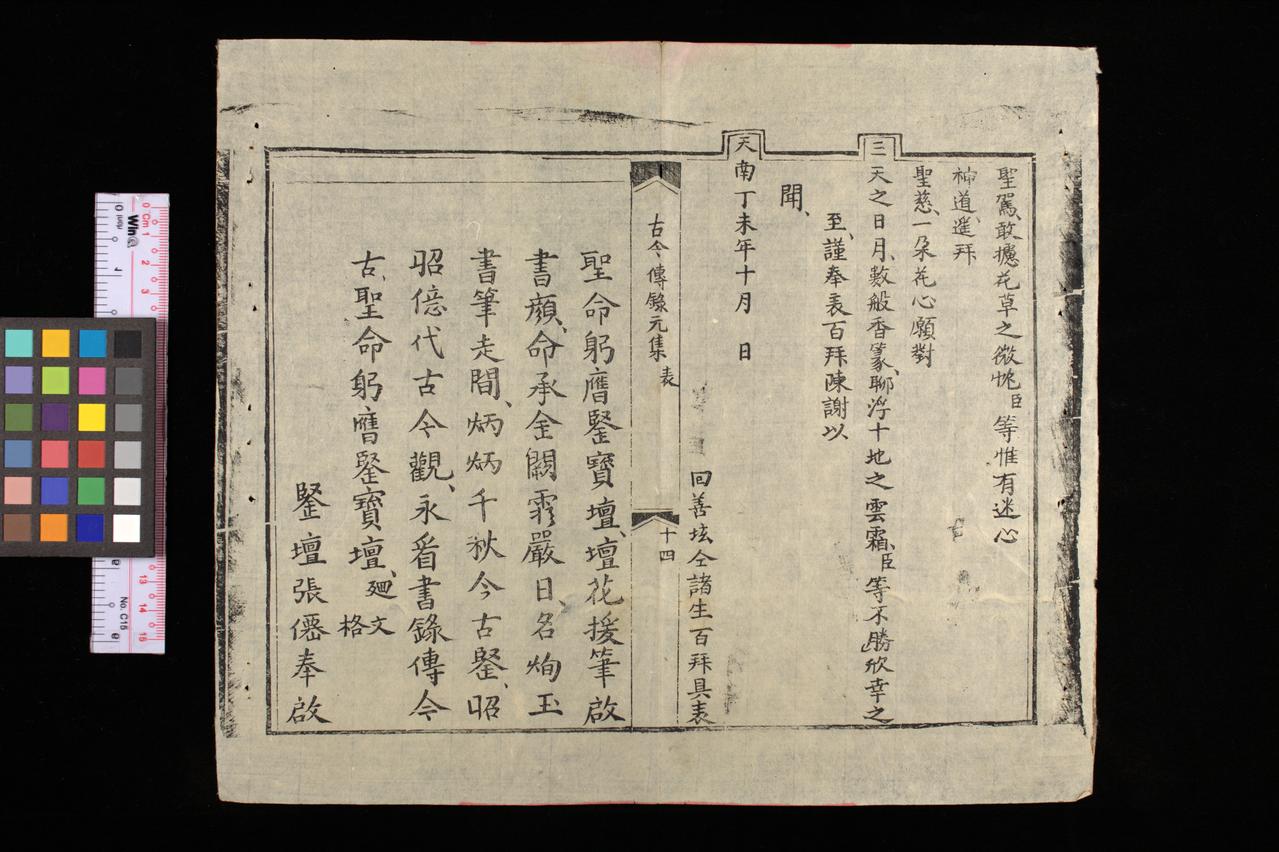 聖駕、敢攄花草之微忱臣等惟有迷心
神道、遥拜
聖慈、一朶花心願對
三天之日月、數般香篆、聊浮十地之雲霜、臣等不勝欣幸之
至、謹奉表百拜陳謝以
聞、
天南丁未年十月 日
回善坛仝諸生百拜具表
古今傳錄元集 表 十四
聖命躬膺鋻寶壇、壇花援筆啟
書頫、命承金闕霛嚴日名炯玉
書筆走間、炳炳千秋今古鋻、昭
昭億代古今觀、永看書錄傳今
古、聖命躬膺鋻寶壇、廻文格
鋻壇張僊奉啟